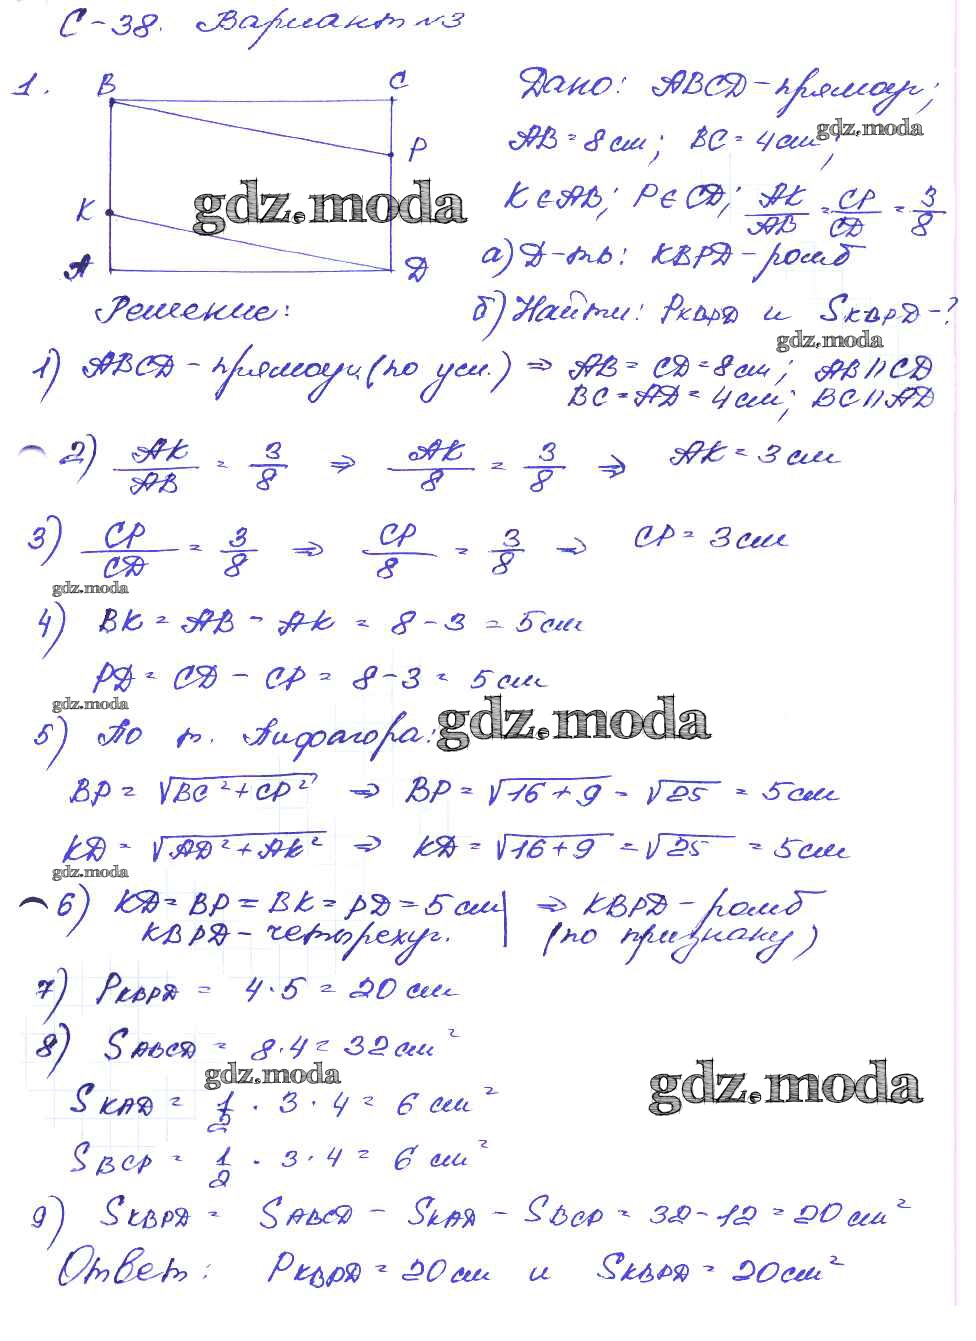 С-38. Вариант №3
1.
B
C
P
K
A
D
Дано: ABCD - прямоуг;
AB = 8 см; BC = 4 см;
gdz.moda
K ∈ AB; P ∈ CD; AK/AB = CP/CD = 3/8
gdz.moda
а) Д-ть: KBPD - ромб
б) Найти: P_KBPD и S_KBPD - ?
gdz.moda
Решение:
1) ABCD - прямоуг. (по усл.) ⇒ AB = CD = 8 см; AB || CD
BC = AD = 4 см; BC || AD
2) AK/AB = 3/8 ⇒ AK/8 = 3/8 ⇒ AK = 3 см
3) CP/CD = 3/8 ⇒ CP/8 = 3/8 ⇒ CP = 3 см
gdz.moda
4) BK = AB - AK = 8 - 3 = 5 см
PD = CD - CP = 8 - 3 = 5 см
gdz.moda
gdz.moda
5) По т. Пифагора:
BP = √BC² + CP² ⇒ BP = √16 + 9 = √25 = 5 см
KD = √AD² + AK² ⇒ KD = √16 + 9 = √25 = 5 см
gdz.moda
6) KD = BP = BK = PD = 5 см | ⇒ KBPD - ромб
KBPD - четырехуг. | (по признаку)
7) P_KBPD = 4 · 5 = 20 см
8) S_ABCD = 8 · 4 = 32 см²
gdz.moda
gdz.moda
S_KAD = 1/2 · 3 · 4 = 6 см²
S_BCP = 1/2 · 3 · 4 = 6 см²
9) S_KBPD = S_ABCD - S_KAD - S_BCP = 32 - 12 = 20 см²
Ответ: P_KBPD = 20 см и S_KBPD = 20 см²